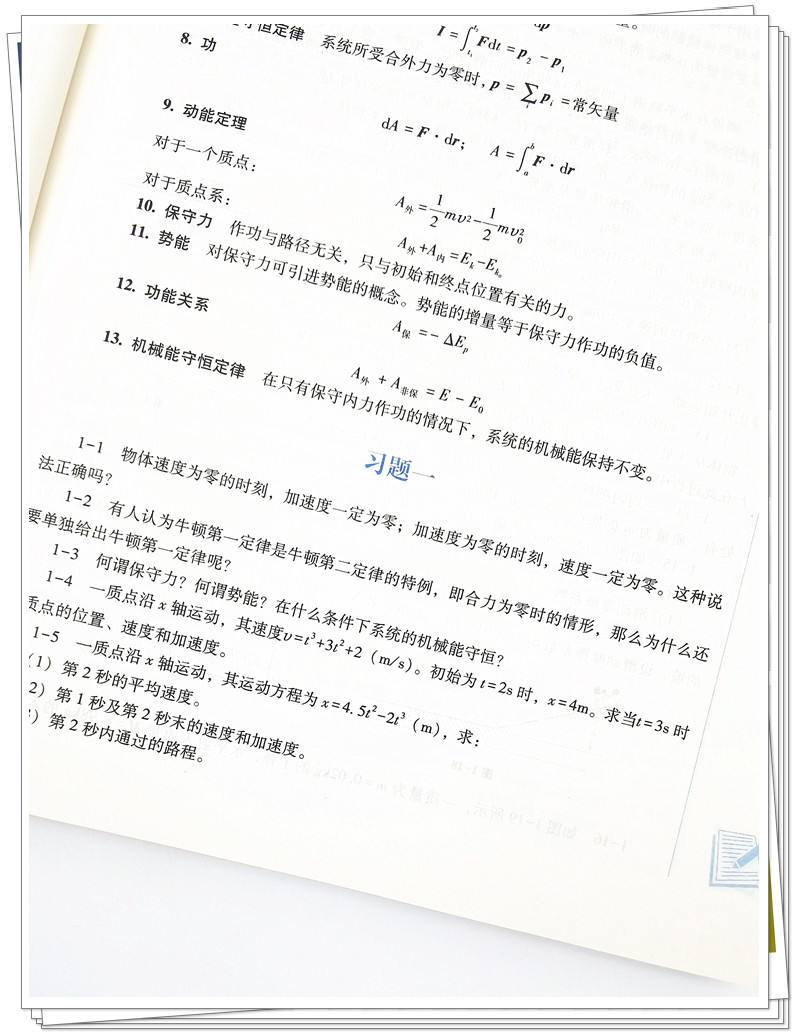 守恒定律 系统所受合外力为零时，p = ∑ᵢ pᵢ = 常矢量
I = ∫ Fdt = p₂ − p₁
8. 功
dA = F · dr； A = ∫ₐᵇ F · dr
9. 动能定理
对于一个质点：
A外 = 1/2 mv² − 1/2 mv₀²
对于质点系：
A外 + A内 = Eₖ − Eₖ₀
10. 保守力 作功与路径无关，只与初始和终点位置有关的力。
11. 势能 对保守力可引进势能的概念。势能的增量等于保守力作功的负值。
A保 = − ΔEₚ
12. 功能关系
A外 + A非保 = E − E₀
13. 机械能守恒定律 在只有保守内力作功的情况下，系统的机械能保持不变。
习题一
1-1 物体速度为零的时刻，加速度一定为零；加速度为零的时刻，速度一定为零。这种说
法正确吗？
1-2 有人认为牛顿第一定律是牛顿第二定律的特例，即合力为零时的情形，那么为什么还
要单独给出牛顿第一定律呢？
1-3 何谓保守力？何谓势能？在什么条件下系统的机械能守恒？
1-4 一质点沿 x 轴运动，其速度v=t³+3t²+2（m/s）。初始为 t=2s 时，x=4m。求当t=3s 时
质点的位置、速度和加速度。
1-5 一质点沿 x 轴运动，其运动方程为 x=4.5t²−2t³（m），求：
（1）第 2 秒的平均速度。
2）第 1 秒及第 2 秒末的速度和加速度。
）第 2 秒内通过的路程。